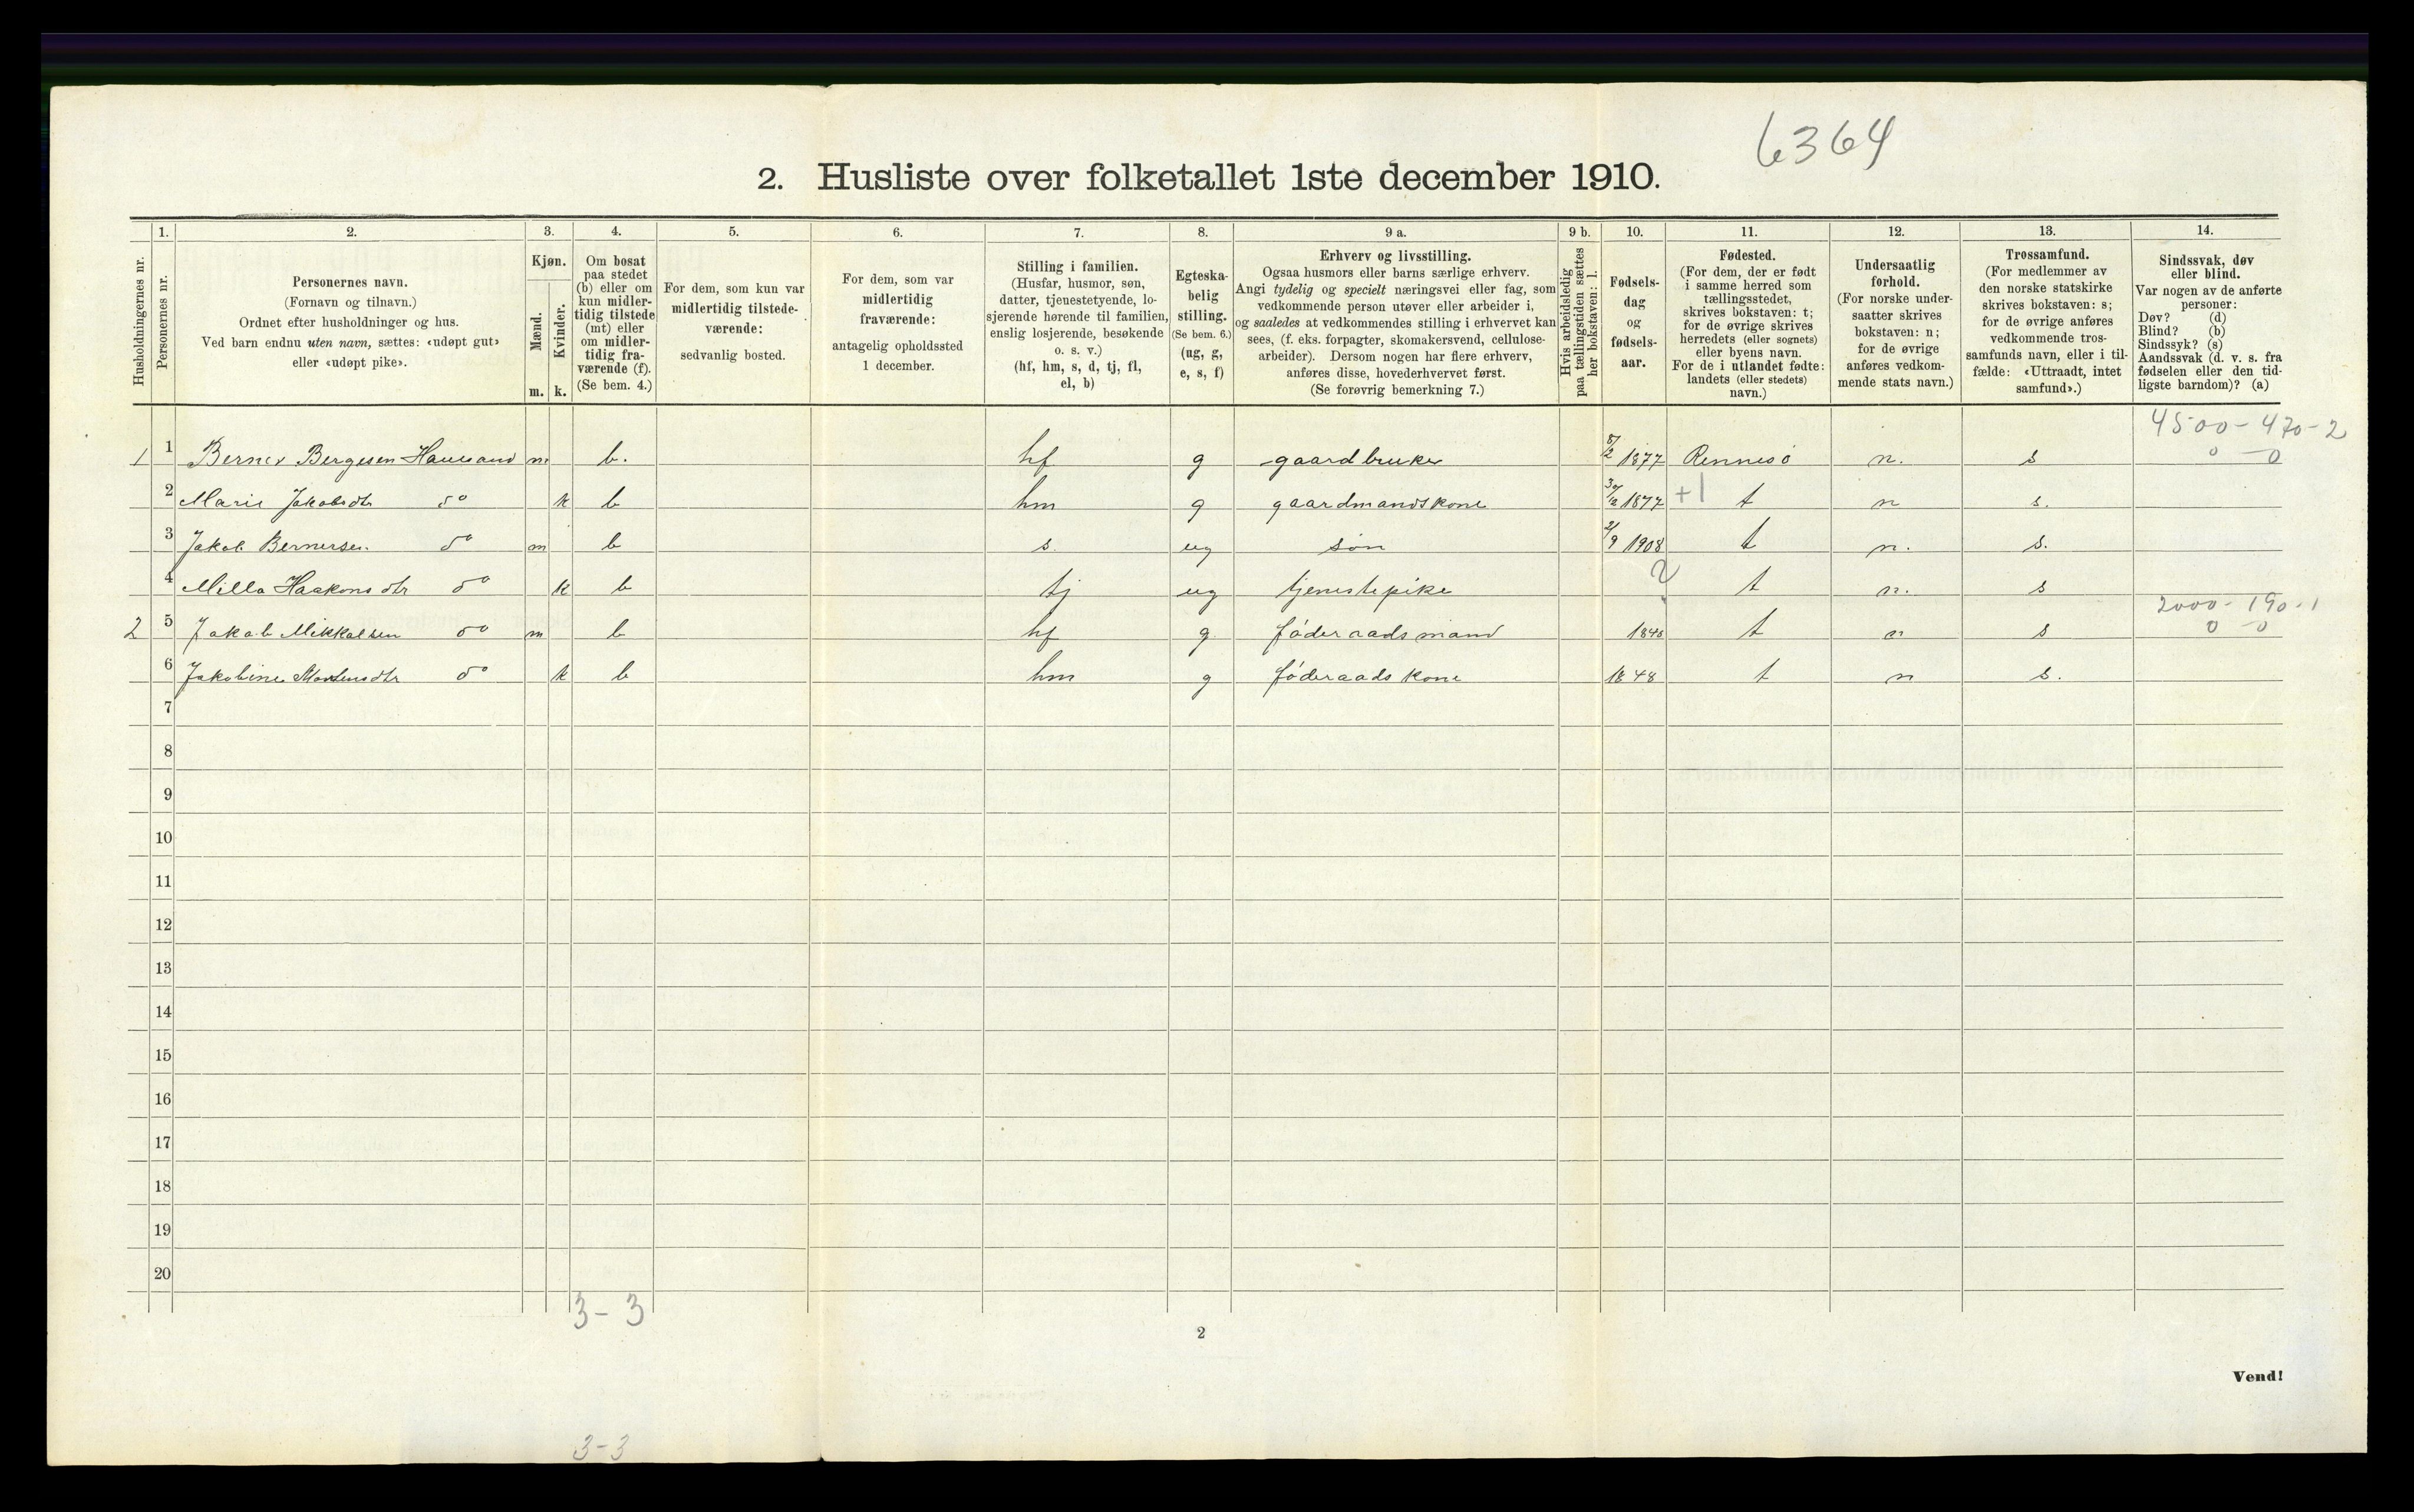 6364
2. Husliste over folketallet 1ste december 1910.
Husholdningernes nr.
1.
Personernes nr.
2.
Personernes navn.
(Fornavn og tilnavn.)
Ordnet efter husholdninger og hus.
Ved barn endnu uten navn, sættes: «udøpt gut»
eller «udøpt pike».
3.
Kjøn.
Mænd.
Kvinder.
m. k.
4.
Om bosat
paa stedet
(b) eller om
kun midler-
tidig tilstede
(mt) eller
om midler-
tidig fra-
værende (f).
(Se bem. 4.)
5.
For dem, som kun var
midlertidig tilstede-
værende:
sedvanlig bosted.
6.
For dem, som var
midlertidig
fraværende:
antagelig opholdssted
1 december.
7.
Stilling i familien.
(Husfar, husmor, søn,
datter, tjenestetyende, lo-
sjerende hørende til familien,
enslig losjerende, besøkende
o. s. v.)
(hf, hm, s, d, tj, fl,
el, b)
8.
Egteska-
belig
stilling.
(Se bem. 6.)
(ug, g,
e, s, f)
9 a.
Erhverv og livsstilling.
Ogsaa husmors eller barns særlige erhverv.
Angi tydelig og specielt næringsvei eller fag, som
vedkommende person utøver eller arbeider i,
og saaledes at vedkommendes stilling i erhvervet kan
sees, (f. eks. forpagter, skomakersvend, cellulose-
arbeider). Dersom nogen har flere erhverv,
anføres disse, hovederhvervet først.
(Se forøvrig bemerkning 7.)
9 b.
Hvis arbeidsledig
paa tællingstiden sættes
her bokstaven: l.
10.
Fødsels-
dag
og
fødsels-
aar.
11.
Fødested.
(For dem, der er født
i samme herred som
tællingsstedet,
skrives bokstaven: t;
for de øvrige skrives
herredets (eller sognets)
eller byens navn.
For de i utlandet fødte:
landets (eller stedets)
navn.)
12.
Undersaatlig
forhold.
(For norske under-
saatter skrives
bokstaven: n;
for de øvrige
anføres vedkom-
mende stats navn.)
13.
Trossamfund.
(For medlemmer av
den norske statskirke
skrives bokstaven: s;
for de øvrige anføres
vedkommende tros-
samfunds navn, eller i til-
fælde: «Uttraadt, intet
samfund».)
14.
Sindssvak, døv
eller blind.
Var nogen av de anførte
personer:
Døv? (d)
Blind? (b)
Sindssyk? (s)
Aandssvak (d. v. s. fra
fødselen eller den tid-
ligste barndom)? (a)
4500-470-2
0 - 0
1 1 Berner Bergesen m b. hf g gaardbruker 8/2 1877 Rennesö n. s
2 Marie Jakobsdtr do k b hm g gaardmandskone 1877 +1 t n s.
3 Jakob Bernersen do m b s. ug søn 2/9 1908 t n. s.
4 Milla Haakonsdtr do k b tj ug tjenestepike t n. s
2000-190-1
0 - 0
2 5 Jakob Mikkalsen do m b hf g föderaadsmand t n s
6 Jakobine Mortensdtr do k b hm g föderaadskone 1848 t n s.
7
8
9
10
11
12
13
14
15
16
17
18
19
20
3-3
2
Vend!
3-3